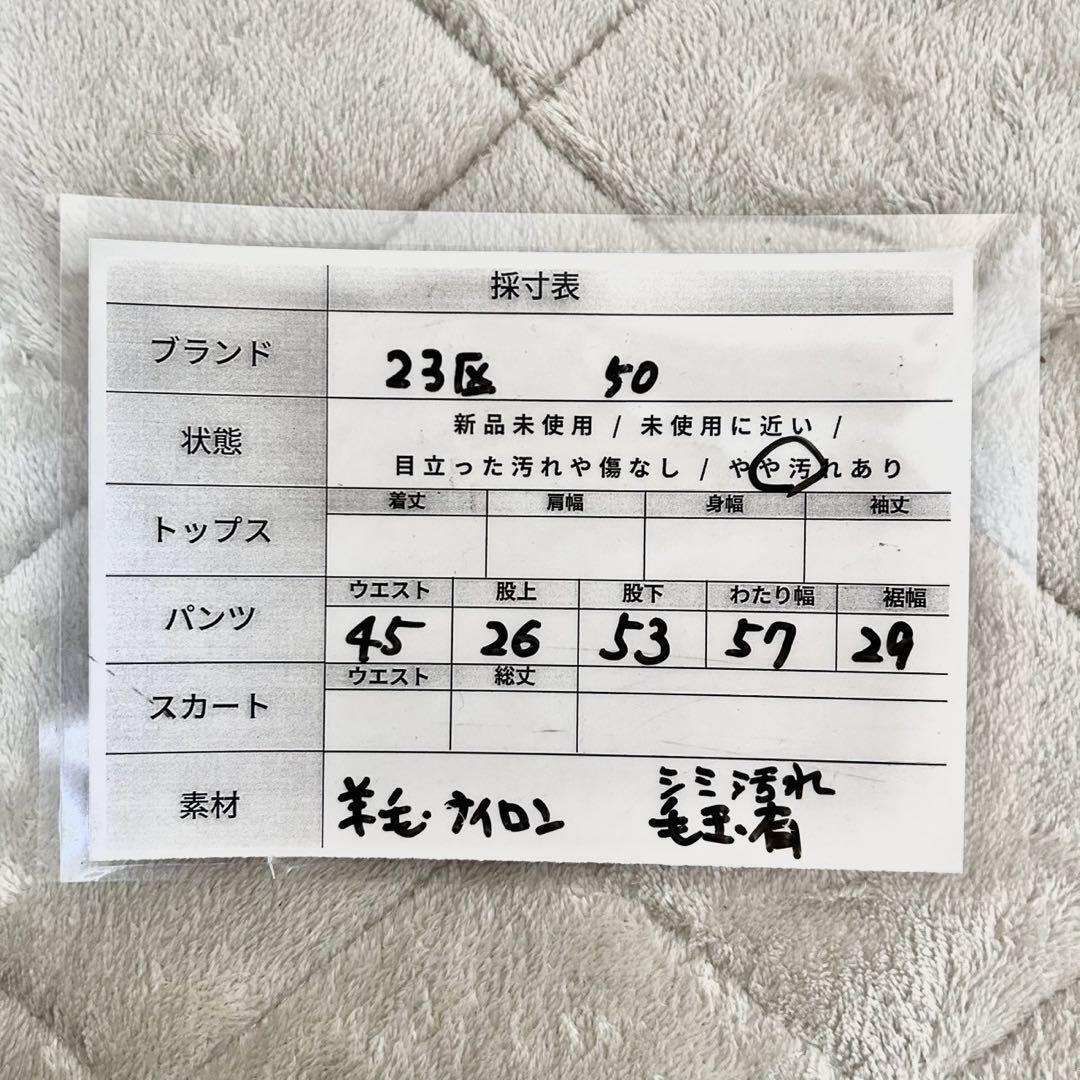 採寸表
ブランド 23区 50
状態 新品未使用 / 未使用に近い /
目立った汚れや傷なし / やや汚れあり
トップス 着丈 肩幅 身幅 袖丈
パンツ ウエスト 股上 股下 わたり幅 裾幅
45 26 53 57 29
スカート ウエスト 総丈
素材 羊毛・ナイロン シミ汚れ
毛玉・有